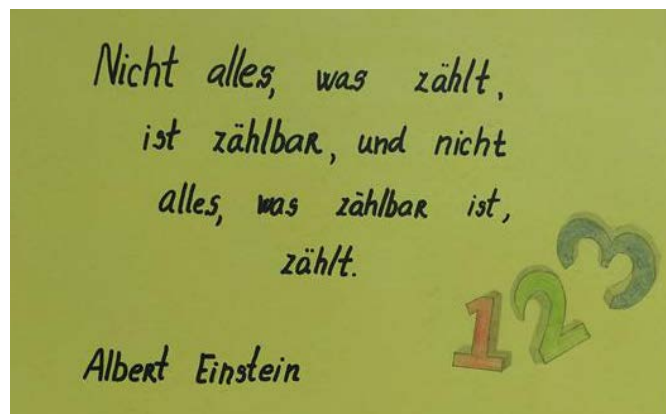 Nicht alles, was zählt,
ist zählbar, und nicht
alles, was zählbar ist,
zählt.
Albert Einstein
123